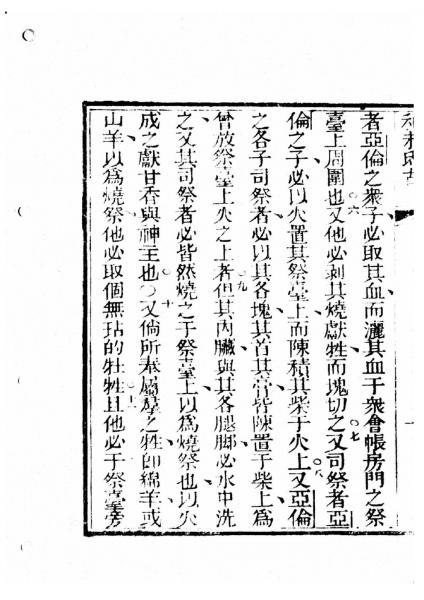 者亞倫之衆子必取其血而灑其血于衆會帳房門之祭
臺上周圍也○六又他必剝其燒獻牲而塊切之○七又司祭者亞
倫之子必以火置其祭臺上而陳積其柴于火上○八又亞倫
之各子司祭者必以其各塊其首其膏皆陳置于柴上爲
曾放祭臺上火之上者○九但其內臟與其各腿脚必水中洗
之又其司祭者必皆然燒之于祭臺上以爲燒祭也以火
成之獻甘香與神主也○十又倘所奉屬羣之牲卽綿羊或
山羊以爲燒祭他必取個無玷的牡牲○十一且他必于祭臺旁